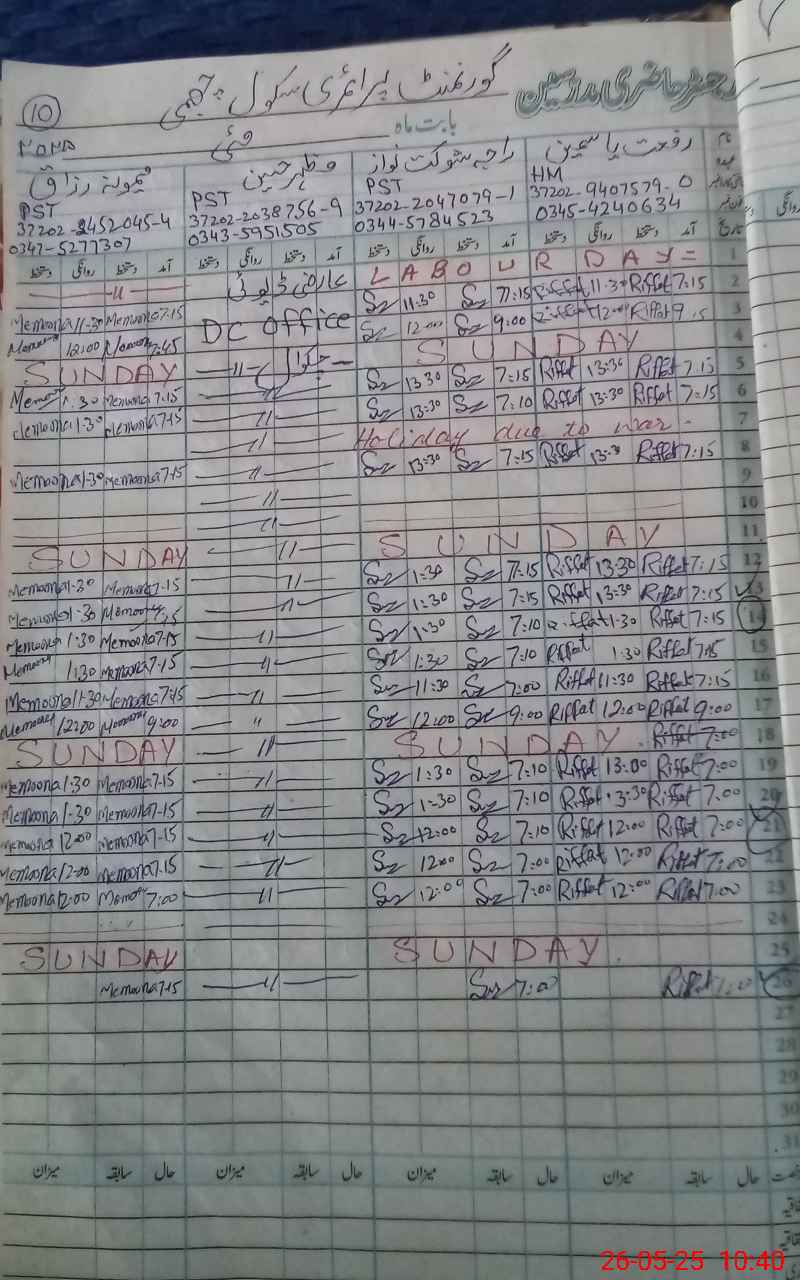 رجسٹر حاضری مدرسین گورنمنٹ پرائمری سکول
10
بابت ماہ مئی
رفعت یاسمین راجہ شوکت نواز مظہر حسین میمونہ رزاق
HM PST PST PST
37202-9407579-0 37202-2047079-1 37202-2038756-9 37202-2452045-4
0345-4240634 0344-5784523 0343-5951505 0347-5277307
آمد دستخط روانگی دستخط آمد دستخط روانگی دستخط آمد دستخط روانگی دستخط آمد دستخط روانگی دستخط
1 LABOUR DAY= عارضی ڈیوٹی —〃—
2 Riffat 7:15 Riffat 11:30 7:15 11:30 Memoona 7:15 Memoona 11:30
3 Riffat 9:15 Riffat 12:00 9:00 12:00 DC office 7:45 12:00
4 SUNDAY —〃— SUNDAY
5 Riffat 7:15 Riffat 13:30 7:15 13:30 —〃— Memoona 7:15 1:30
6 Riffat 7:15 Riffat 13:30 7:10 13:30 —〃— Memoona 7:15 Memoona 1:30
7 Holiday due to war. —〃—
8 Riffat 7:15 Riffat 13:30 7:15 13:30 —〃— Memoona 7:15 Memoona 1:30
9 —〃—
10 —〃—
11 SUNDAY —〃— SUNDAY
12 Riffat 7:15 Riffat 13:30 7:15 1:30 —〃— Memoona 7:15 Memoona 1:30
13 Riffat 7:15 Riffat 13:30 7:15 1:30 —〃— Memoona 7:15 Memoona 1:30
14 Riffat 7:15 Riffat 1:30 7:10 1:30 —〃— Memoona 7:15 Memoona 1:30
15 Riffat 7:15 Riffat 1:30 7:10 1:30 —〃— Memoona 7:15 Memoona 1:30
16 Riffat 7:15 Riffat 11:30 7:00 11:30 —〃— Memoona 7:15 Memoona 11:30
17 Riffat 9:00 Riffat 12:00 9:00 12:00 —〃— Memoona 9:00 Memoona 12:00
18 Riffat 7:00 SUNDAY. —〃— SUNDAY
19 Riffat 7:00 Riffat 13:00 7:10 1:30 —〃— Memoona 7:15 Memoona 1:30
20 Riffat 7:00 Riffat 13:30 7:10 1:30 —〃— Memoona 7:15 Memoona 1:30
21 Riffat 7:00 Riffat 12:00 7:10 12:00 —〃— Memoona 7:15 Memoona 12:00
22 Riffat 7:00 Riffat 12:00 7:00 12:00 —〃— Memoona 7:15 Memoona 12:00
23 Riffat 7:00 Riffat 12:00 7:00 12:00 —〃— Memoona 7:00 Memoona 12:00
24
25 SUNDAY. SUNDAY
26 Riffat 7:00 7:00 —〃— Memoona 7:15
27
28
29
30
31
حال سابقہ میزان حال سابقہ میزان حال سابقہ میزان حال سابقہ میزان
26-05-25 10:40